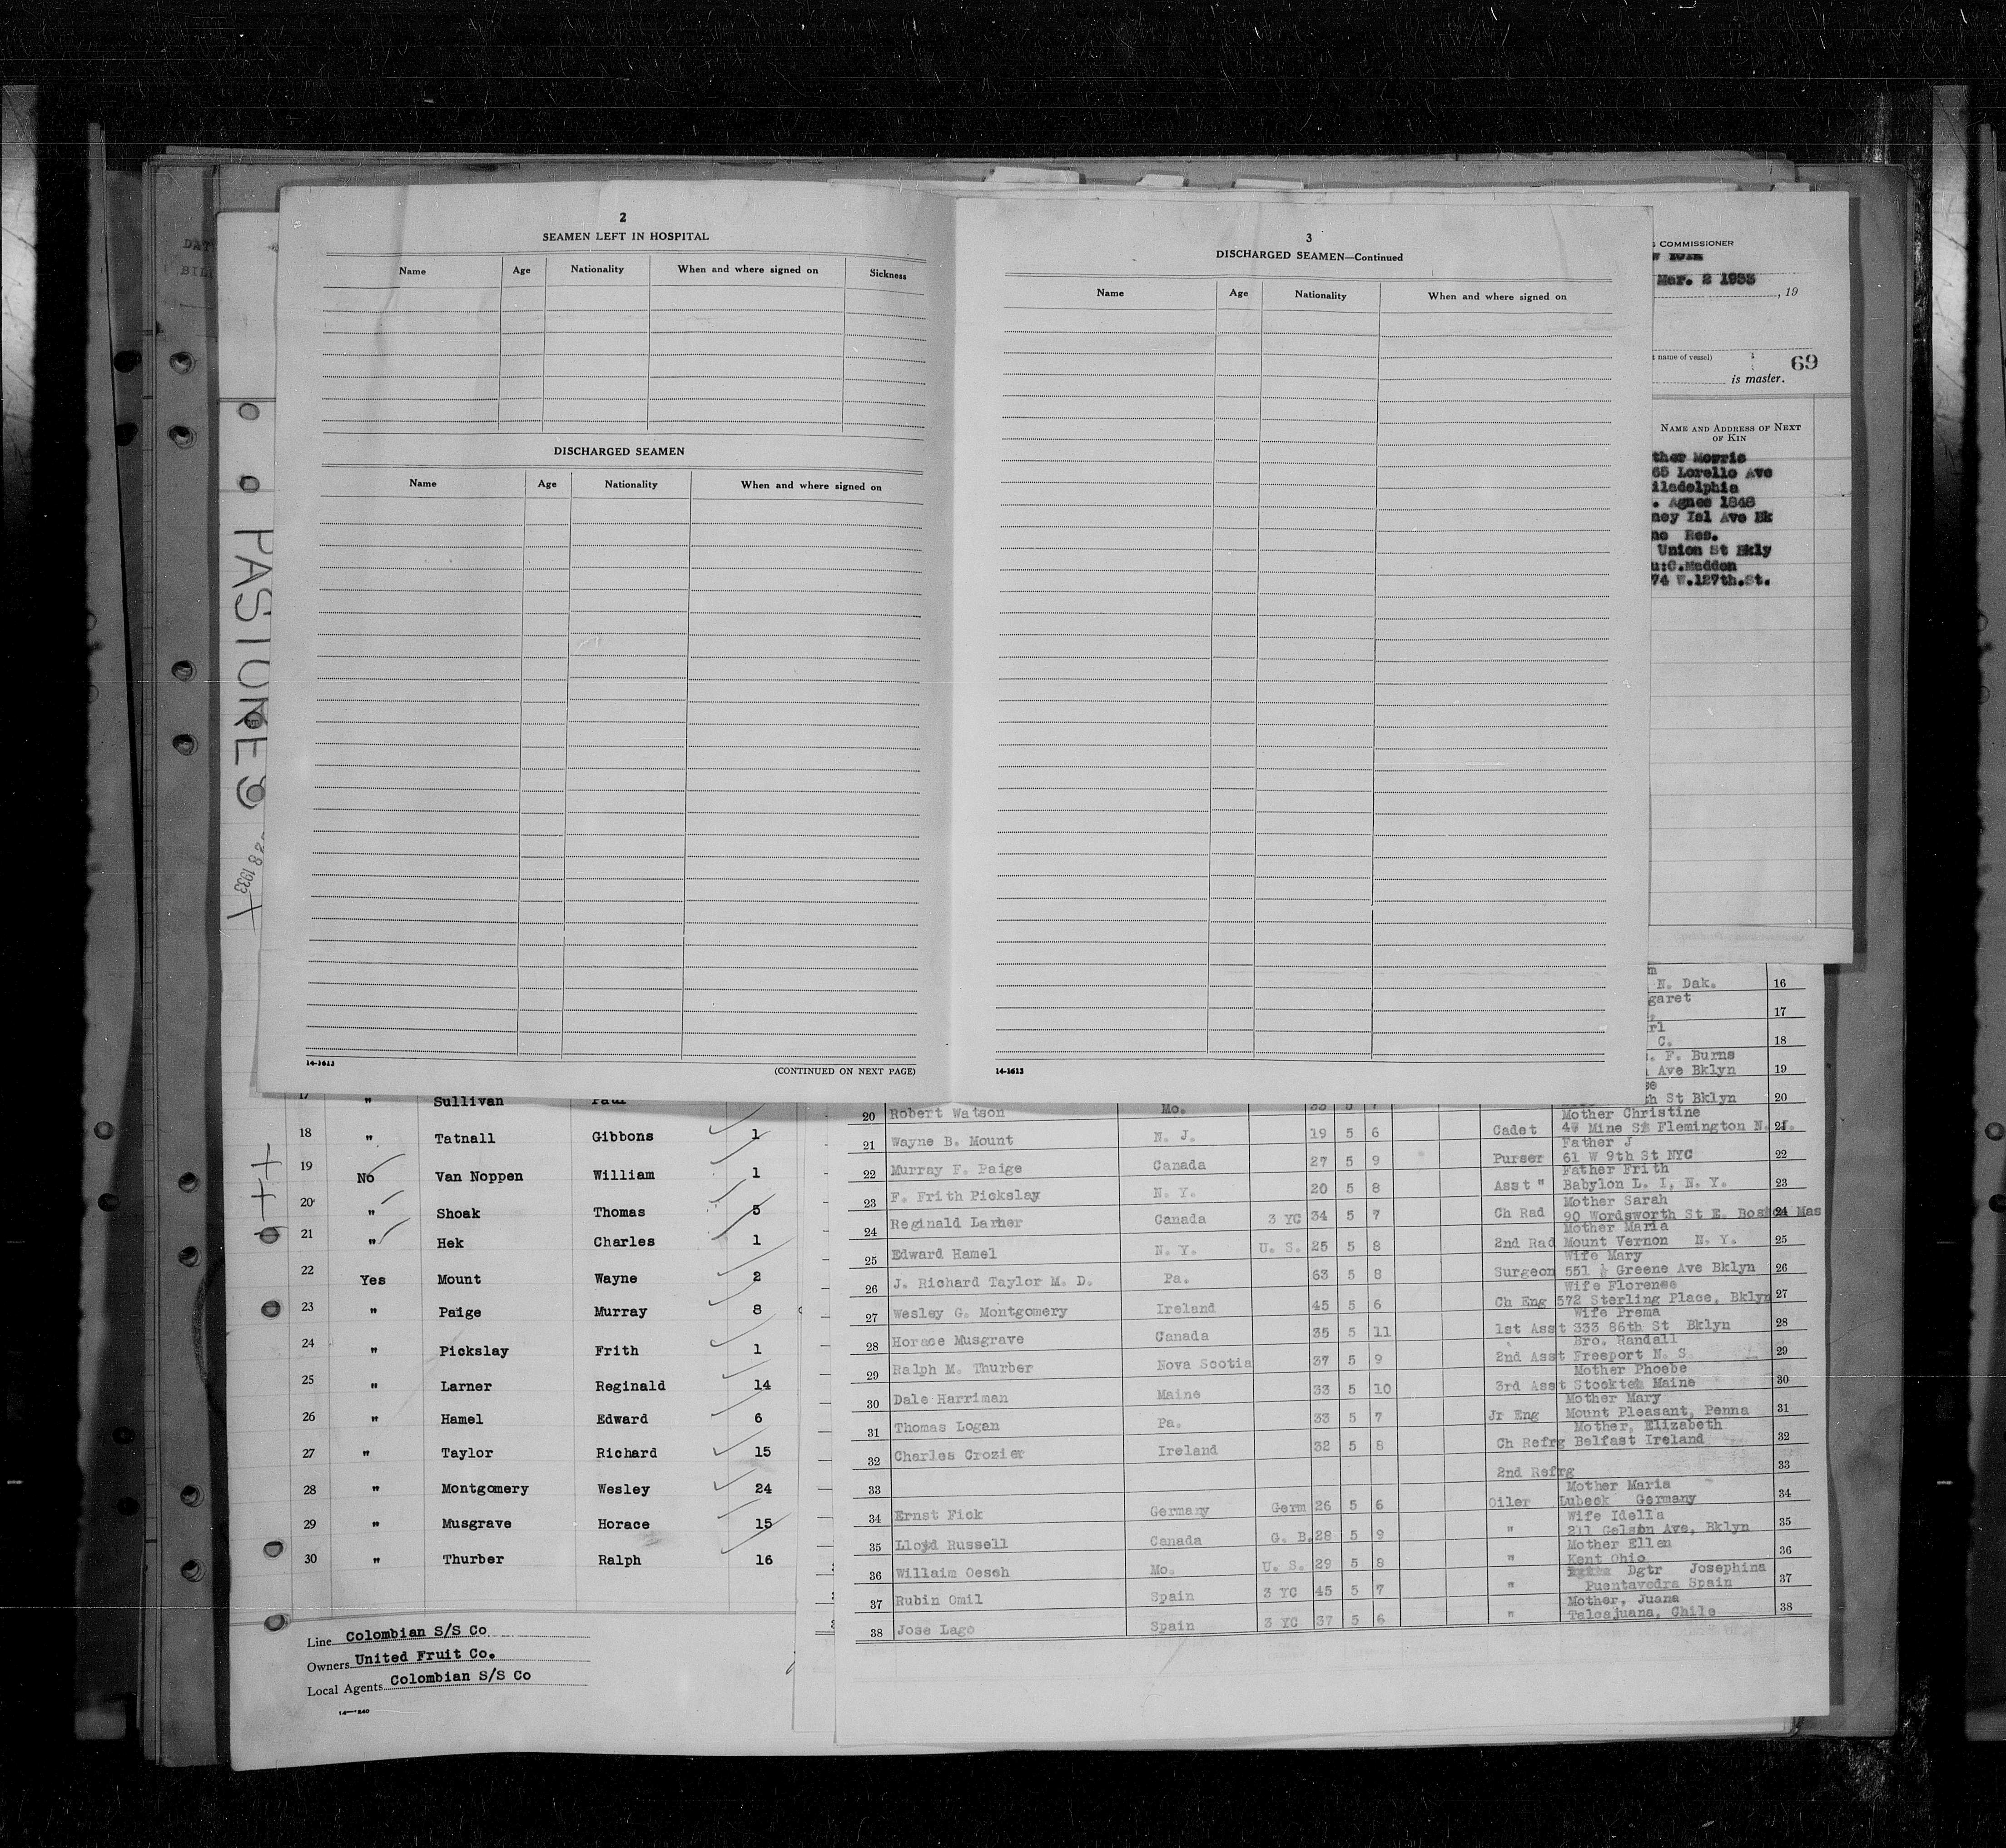 2
SEAMEN LEFT IN HOSPITAL
Name Age Nationality When and where signed on Sickness
DISCHARGED SEAMEN
Name Age Nationality When and where signed on
14-1613
(CONTINUED ON NEXT PAGE)
3
DISCHARGED SEAMEN—Continued
Name Age Nationality When and where signed on
14-1613
COMMISSIONER
Mar. 2 1933
, 19
name of vessel)
69
is master.
NAME AND ADDRESS OF NEXT
OF KIN
Morris
65 Lorello Ave
Agnes 1848
Isl Ave Bk
Res.
Union St Bkly
C.Madden
74 W.127th.St.
N. Dak. 16
17
C. 18
F. Burns
Ave Bklyn 19
St Bklyn 20
17 " Sullivan Paul
18 " Tatnall Gibbons 1
19 No Van Noppen William 1
20 " Shoak Thomas 5
21 " Hek Charles 1
22 Yes Mount Wayne 2
23 " Paige Murray 8
24 " Pickslay Frith 1
25 " Larner Reginald 14
26 " Hamel Edward 6
27 " Taylor Richard 15
28 " Montgomery Wesley 24
29 " Musgrave Horace 15
30 " Thurber Ralph 16
Line Colombian S/S Co
Owners United Fruit Co.
Local Agents Colombian S/S Co
20 Robert Watson Mo.
Mother Christine
21 Wayne B. Mount N. J. 19 5 6 Cadet Mine St Flemington N. J. 21
Father J
22 Murray F. Paige Canada 27 5 9 Purser 61 W 9th St NYC 22
Father Frith
23 F. Frith Pickslay N. Y. 20 5 8 Asst " Babylon L. I, N. Y. 23
Mother Sarah
24 Reginald Larner Canada 3 YC 34 5 7 Ch Rad 90 Wordsworth St E. Boston Mas 24
Mother Maria
25 Edward Hamel N. Y. U. S. 25 5 8 2nd Rad Mount Vernon N. Y. 25
Wife Mary
26 J. Richard Taylor M. D. Pa. 63 5 8 Surgeon 551 ½ Greene Ave Bklyn 26
Wife Florense
27 Wesley G. Montgomery Ireland 45 5 6 Ch Eng 572 Sterling Place, Bklyn 27
Wife Prema
28 Horace Musgrave Canada 35 5 11 1st Asst 333 86th St Bklyn 28
Bro. Randall
29 Ralph M. Thurber Nova Scotia 37 5 9 2nd Asst Freeport N. S. 29
Mother Phoebe
30 Dale Harriman Maine 33 5 10 3rd Asst Stockton Maine 30
Mother Mary
31 Thomas Logan Pa. 33 5 7 Jr Eng Mount Pleasant, Penna 31
Mother, Elizabeth
32 Charles Crozier Ireland 32 5 8 Ch Refrg Belfast Ireland 32
33 2nd Refrg 33
Mother Maria
34 Ernst Fick Germany Germ 26 5 6 Oiler Lubeck Germany 34
Wife Idella
35 Lloyd Russell Canada G. B. 28 5 9 " 211 Gelson Ave, Bklyn 35
Mother Ellen
36 Willaim Oesch Mo. U. S. 29 5 8 " Kent Ohio 36
Dgtr Josephina
37 Rubin Omil Spain 3 YC 45 5 7 " Puentavedra Spain 37
Mother, Juana
38 Jose Lago Spain 3 YC 37 5 6 " Talcajuana, Chile 38
PASTORES
8 1933